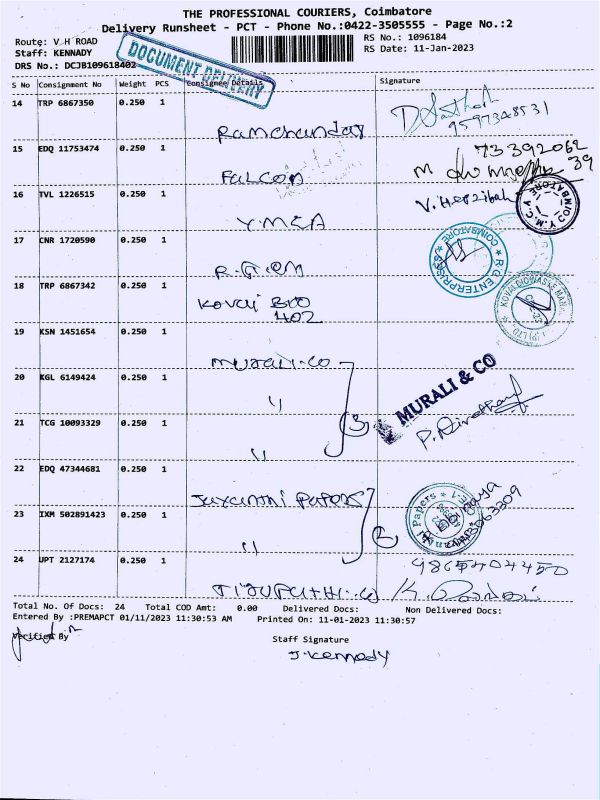 THE PROFESSIONAL COURIERS, Coimbatore
Delivery Runsheet - PCT - Phone No.:0422-3505555 - Page No.:2
Route: V H ROAD
RS No.: 1096184
Staff: KENNADY
RS Date: 11-Jan-2023
DRS No.: DCJB109618402
DOCUMENT DELIVERY
S No Consignment No Weight PCS Consignee Details Signature
14 TRP 6867350 0.250 1
9597348531
Ramchandar
15 EDQ 11753474 0.250 1
73 392062
39
Falcon
16 TVL 1226515 0.250 1
V. Herzibah
Y.M.C.A
COIMBATORE
Y.M.C.A
17 CNR 1720590 0.250 1
R.G. ENTERPRISES
COIMBATORE
18 TRP 6867342 0.250 1
Kovai Bio
402
19 KSN 1451654 0.250 1
Murali-co
20 KGL 6149424 0.250 1
MURALI & CO
"
3
21 TCG 10093329 0.250 1
"
22 EDQ 47344681 0.250 1
Jayanthi Papers
23 IXM 502891423 0.250 1
"
2
24 UPT 2127174 0.250 1
9865404450
Total No. Of Docs: 24 Total COD Amt: 0.00 Delivered Docs: Non Delivered Docs:
Entered By :PREMAPCT 01/11/2023 11:30:53 AM Printed On: 11-01-2023 11:30:57
Verified By
Staff Signature
J. Kennady